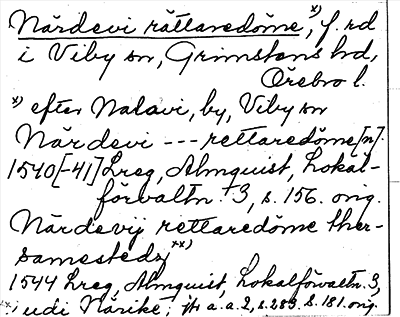 Närdevi rättaredöme, x) f. rd
i Viby sn, Grimstens hd,
Örebro l.
x) efter Nalavi, by, Viby sn
Närdevi --- rettaredöme[n].
1540[-41] Lreg, Almquist, Lokal-
förvaltn. 3, s. 156. orig.
Närdevij rettaredöme ther-
samestedz xx)
1544 Lreg, Almquist, Lokalförvaltn. 3,
xx) udi Närike; jfr a.a. 2, s. 283. s. 181. orig.